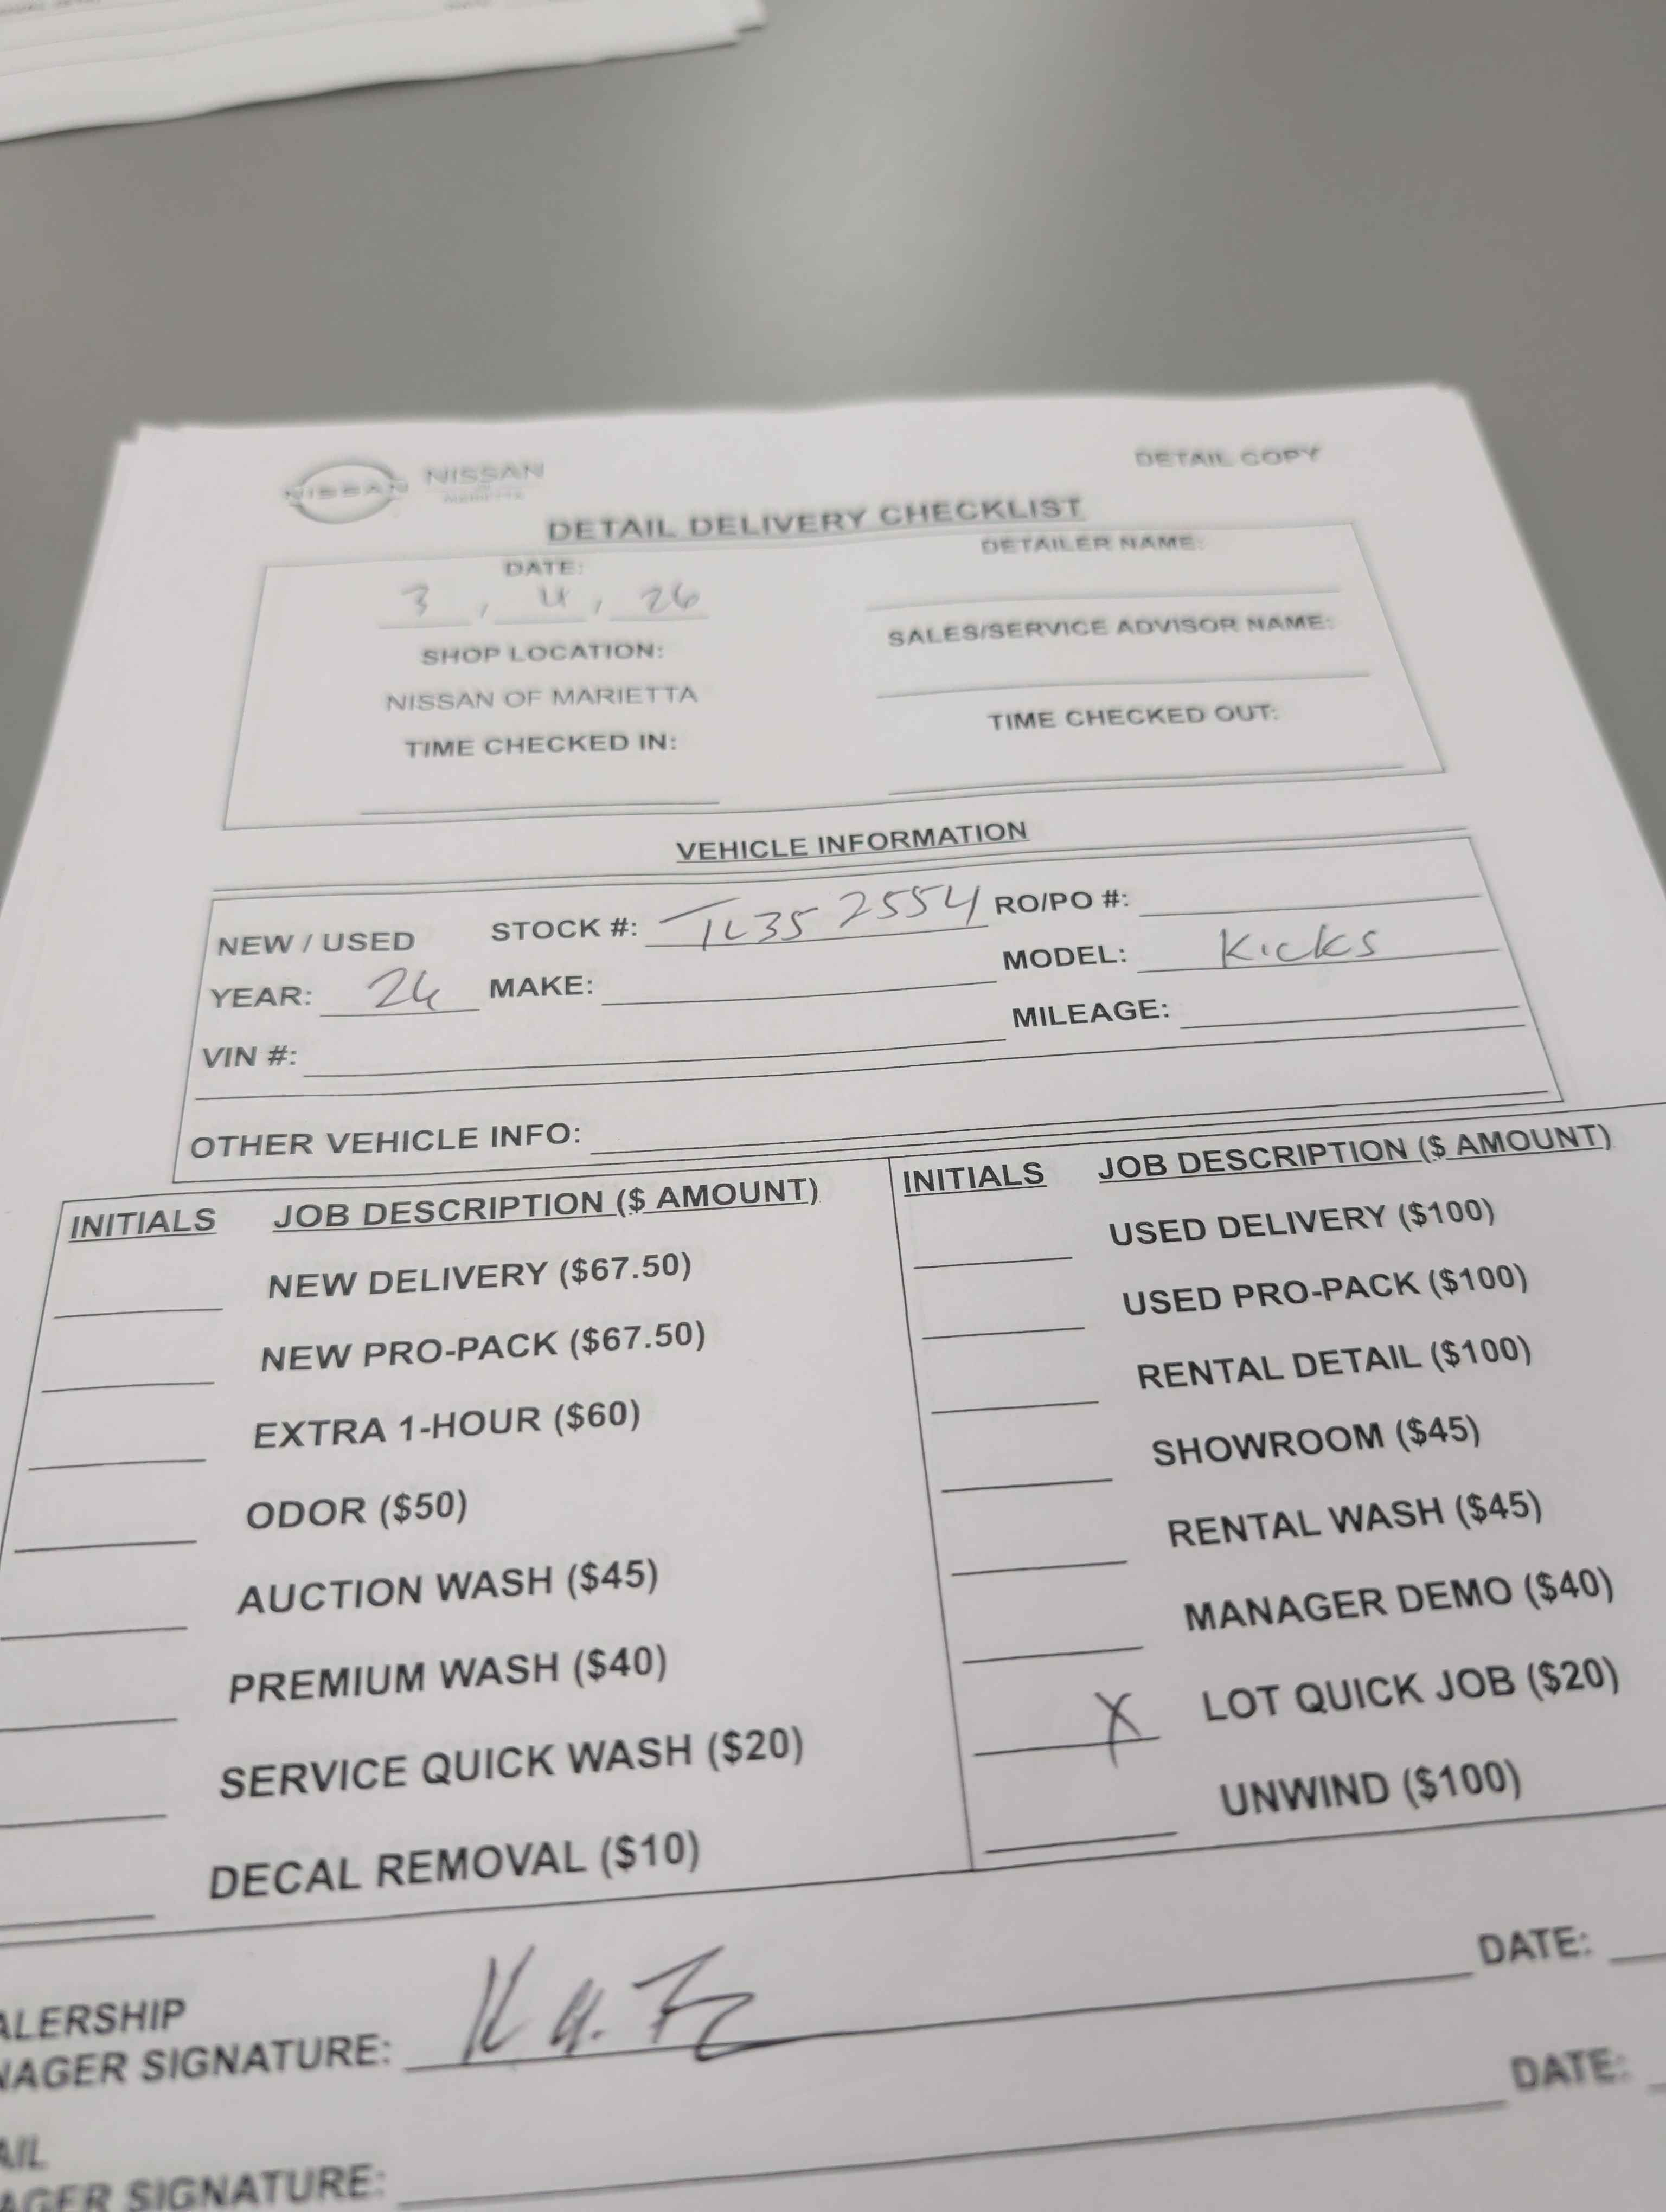 NISSAN NISSAN
OF
MARIETTA
DETAIL COPY
DETAIL DELIVERY CHECKLIST
DATE:
3 , 4 , 26
SHOP LOCATION:
NISSAN OF MARIETTA
TIME CHECKED IN:
DETAILER NAME:
SALES/SERVICE ADVISOR NAME:
TIME CHECKED OUT:
VEHICLE INFORMATION
NEW / USED STOCK #: TL35 2554 RO/PO #:
YEAR: 26 MAKE: MODEL: Kicks
VIN #: MILEAGE:
OTHER VEHICLE INFO:
INITIALS JOB DESCRIPTION ($ AMOUNT)
NEW DELIVERY ($67.50)
NEW PRO-PACK ($67.50)
EXTRA 1-HOUR ($60)
ODOR ($50)
AUCTION WASH ($45)
PREMIUM WASH ($40)
SERVICE QUICK WASH ($20)
DECAL REMOVAL ($10)
INITIALS JOB DESCRIPTION ($ AMOUNT)
USED DELIVERY ($100)
USED PRO-PACK ($100)
RENTAL DETAIL ($100)
SHOWROOM ($45)
RENTAL WASH ($45)
MANAGER DEMO ($40)
X LOT QUICK JOB ($20)
UNWIND ($100)
ALERSHIP
NAGER SIGNATURE: DATE:
AIL
AGER SIGNATURE: DATE: